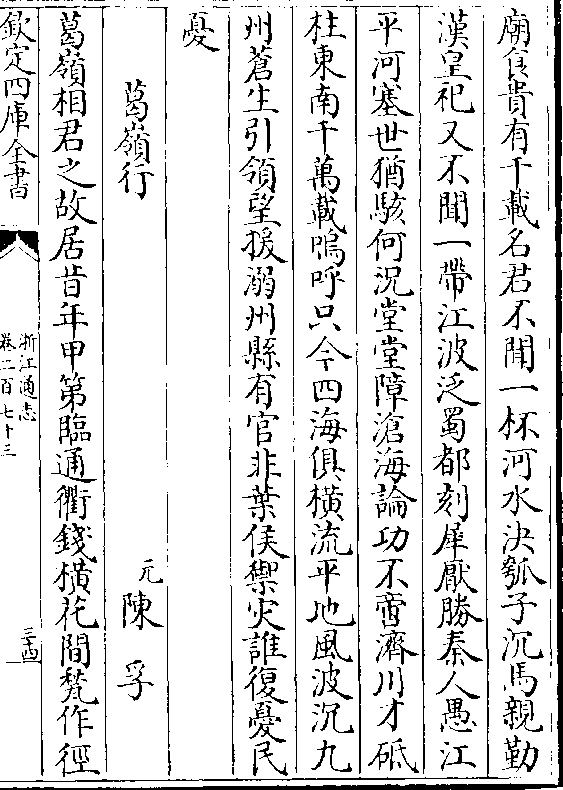 廟食貴有千載名君不聞一杯河水決瓠子沉馬親勤
漢皇祀又不聞一帶江波泛蜀都刻犀厭勝秦人愚江
平河塞世猶駭何況堂堂障滄海論功不啻濟川才砥
柱東南千萬載嗚呼只今四海俱橫流平地風波沉九
州蒼生引領望援溺州縣有官非葉侯禦災誰復憂民
憂
葛嶺行
元陳孚
葛嶺相君之故居昔年甲第臨通衢錢橫花間甃作徑
欽定四庫全書
浙江通志
卷二百七十三
三十四